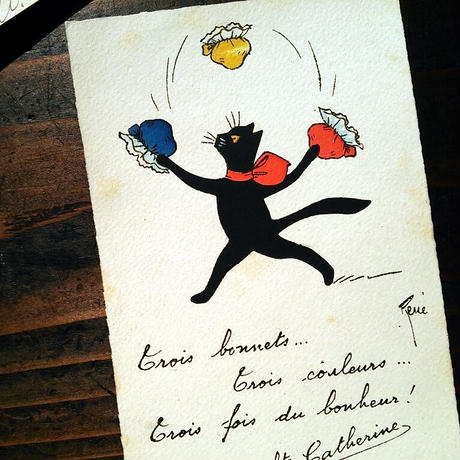 René
Trois bonnets...
Trois couleurs...
Trois fois du bonheur!
Catherine